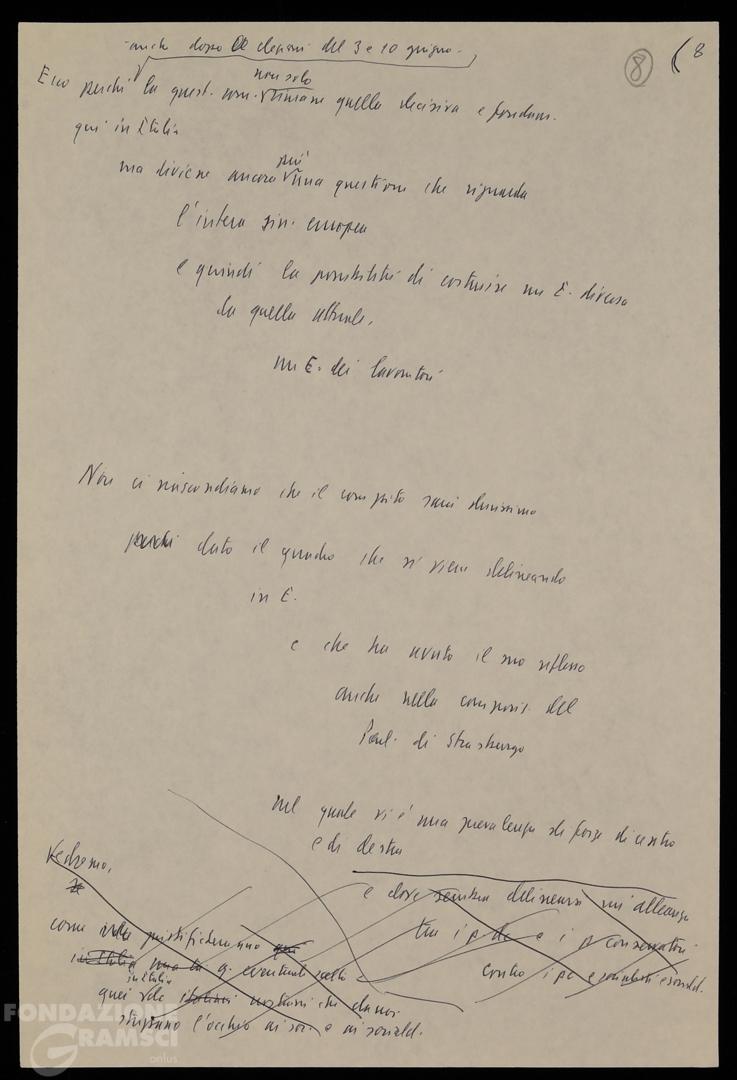 anche dopo le elezioni del 3 e 10 giugno
8
( 8
Ecco perché la quest. com. non solo rimane quella decisiva e fondam.
qui in Italia
ma diviene ancora più una questione che riguarda
l'intera sin. europea
e quindi la possibilità di costruire un E. diversa
da quella attuale,
un E. dei lavoratori
Non ci nascondiamo che il compito sarà durissimo
perché dato il quadro che si viene delineando
in E.
e che ha avuto il suo riflesso
anche nella composiz. del
Parl. di Strasburgo
nel quale vi è una prevalenza di forze di centro
e di destra
Vedremo,
e dove sembra delinearsi un'alleanza
tra i p. dc e i p. conservatori
contro i pc e socialisti e sociald.
come giustificheranno
in Italia
q. eventuale scelta
in Italia
quei dc nostrani che da noi
strizzano l'occhio ai soc. e ai sociald.
FONDAZIONE
GRAMSCI
onlus